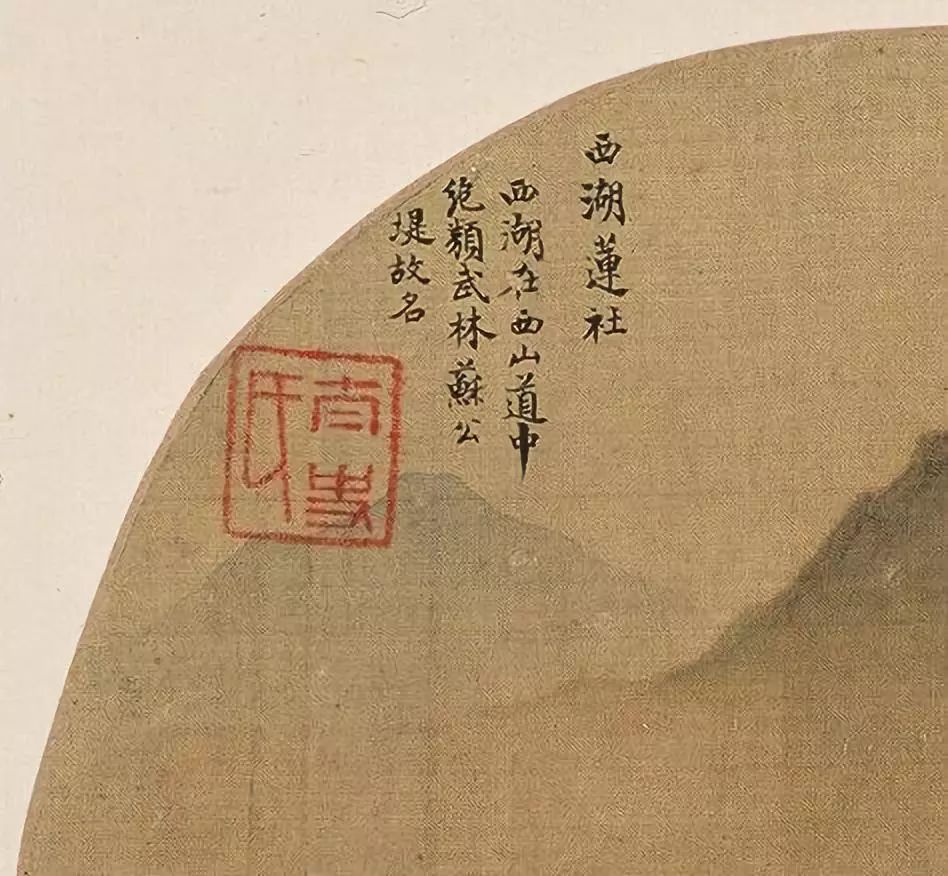 西湖蓮社
西湖在西山道中
絶類武林蘇公
堤故名